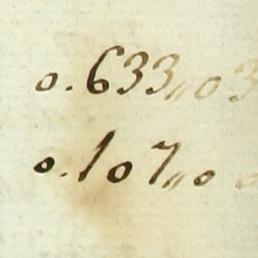 0.633,,03
0.107,,00